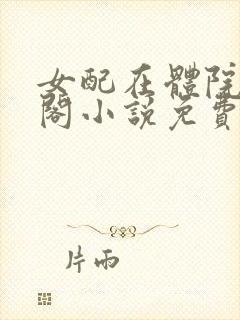 女配在體院
閣小說免費
片雨